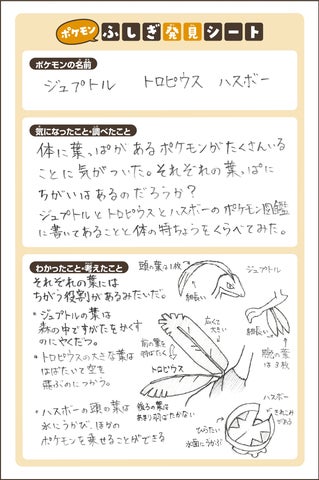 ポケモン ふしぎ発見シート
ポケモンの名前
ジュプトル トロピウス ハスボー
気になったこと・調べたこと
体に葉っぱがあるポケモンがたくさんいる
ことに気がついた。それぞれの葉っぱに
ちがいはあるのだろうか?
ジュプトルとトロピウスとハスボーのポケモン図鑑
に書いてあることと体の特ちょうをくらべてみた。
わかったこと・考えたこと
それぞれの葉には
ちがう役割があるみたいだ。
・ジュプトルの葉は
森の中ですがたをかくす
のにやくだつ。
・トロピウスの大きな葉は
はばたいて空を
飛ぶのにつかう。
・ハスボーの頭の葉は
水にうかび、ほかの
ポケモンを乗せることができる
頭の葉は1枚
ジュプトル
細長い
細長い
腕の葉
は3枚
広くて
大きい
前の葉を
羽ばたく
トロピウス
後ろの葉は
あまり羽ばたかない
ハスボー
きれこみ
がある
ひらたい
水面にうかぶ